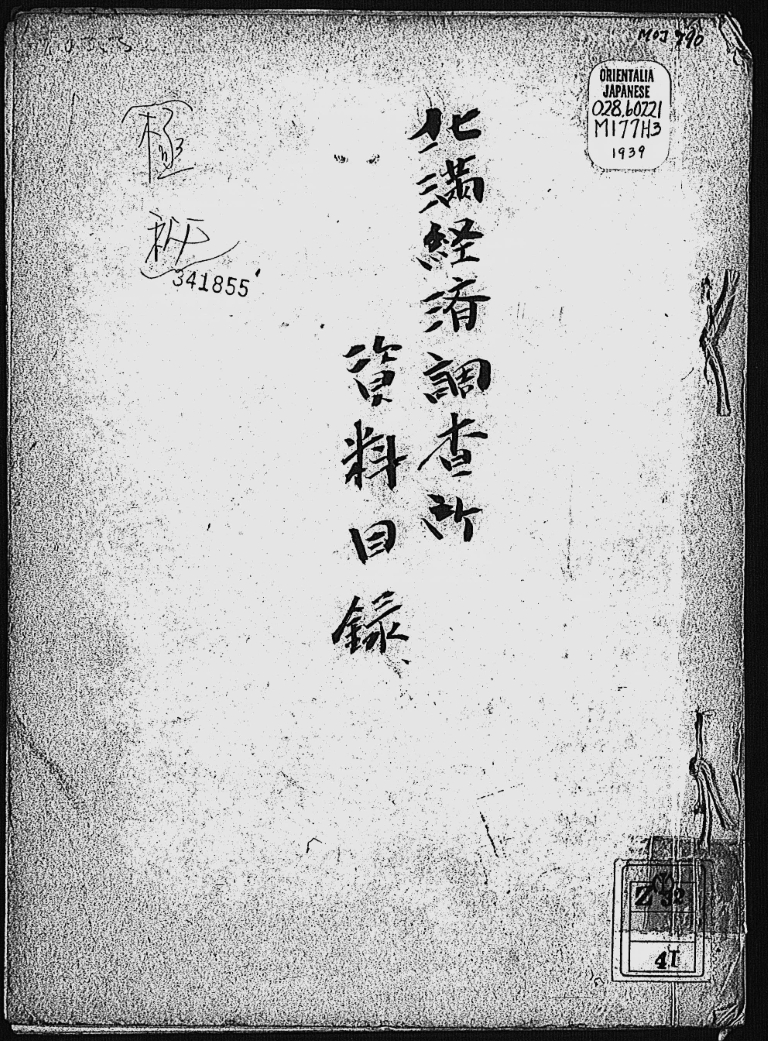 MOJ 790
ORIENTALIA
JAPANESE
028.60221
M177H3
1939
北満経済調査所
資料目録
極
秘
341855
Z 32
41